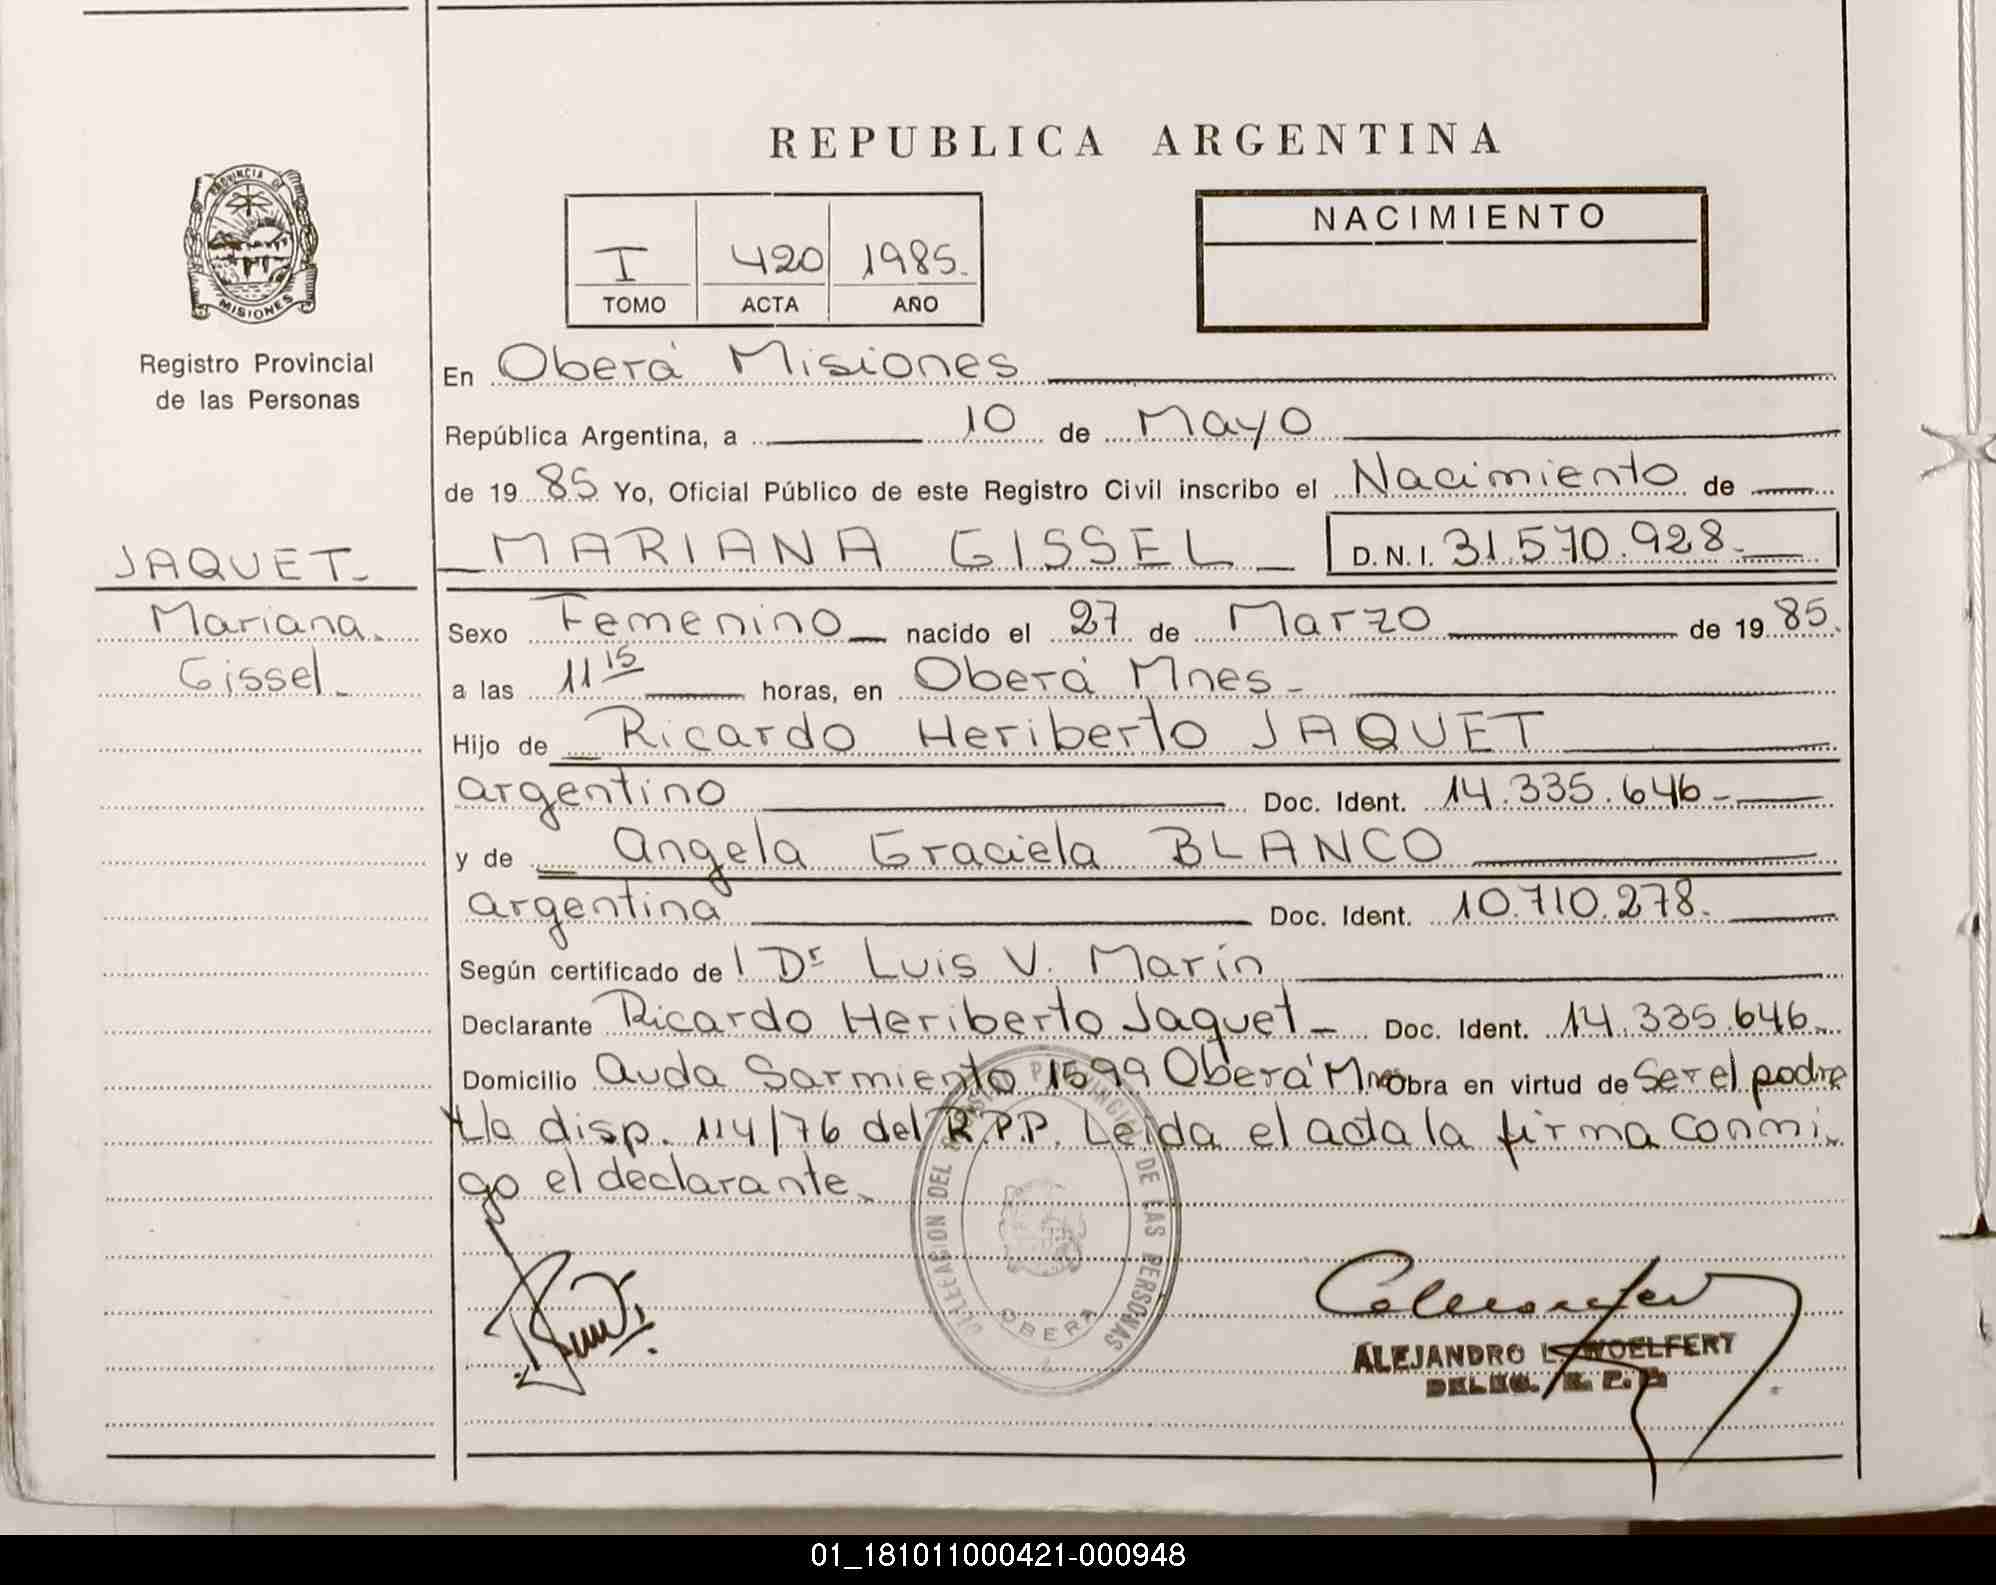 REPUBLICA ARGENTINA
PROVINCIA DE
MISIONES
Registro Provincial
de las Personas
I 420 1985.
TOMO ACTA AÑO
NACIMIENTO
En Oberá Misiones
República Argentina, a 10 de Mayo
de 1985 Yo, Oficial Público de este Registro Civil inscribo el Nacimiento de
MARIANA GISSEL D.N.I. 31.570.928.
JAQUET.
Mariana
Gissel
Sexo Femenino nacido el 27 de Marzo de 1985.
a las 11 15 horas, en Oberá Mnes
Hijo de Ricardo Heriberto JAQUET
argentino Doc. Ident. 14.335.646
y de Angela Graciela BLANCO
argentina Doc. Ident. 10.710.278.
Según certificado del Dr Luis V. Marín
Declarante Ricardo Heriberto Jaquet Doc. Ident. 14.335.646
Domicilio Avda Sarmiento 1599 Oberá Mnes Obra en virtud de Ser el padre
disp. 114/76 del R.P.P. Leida el acta la firma conmi
go el declarante.
DELEGACION DEL REGISTRO PROVINCIAL DE LAS PERSONAS
OBERA
ALEJANDRO L. WOELFERT
DELEG. R. P. P.
01_181011000421-000948